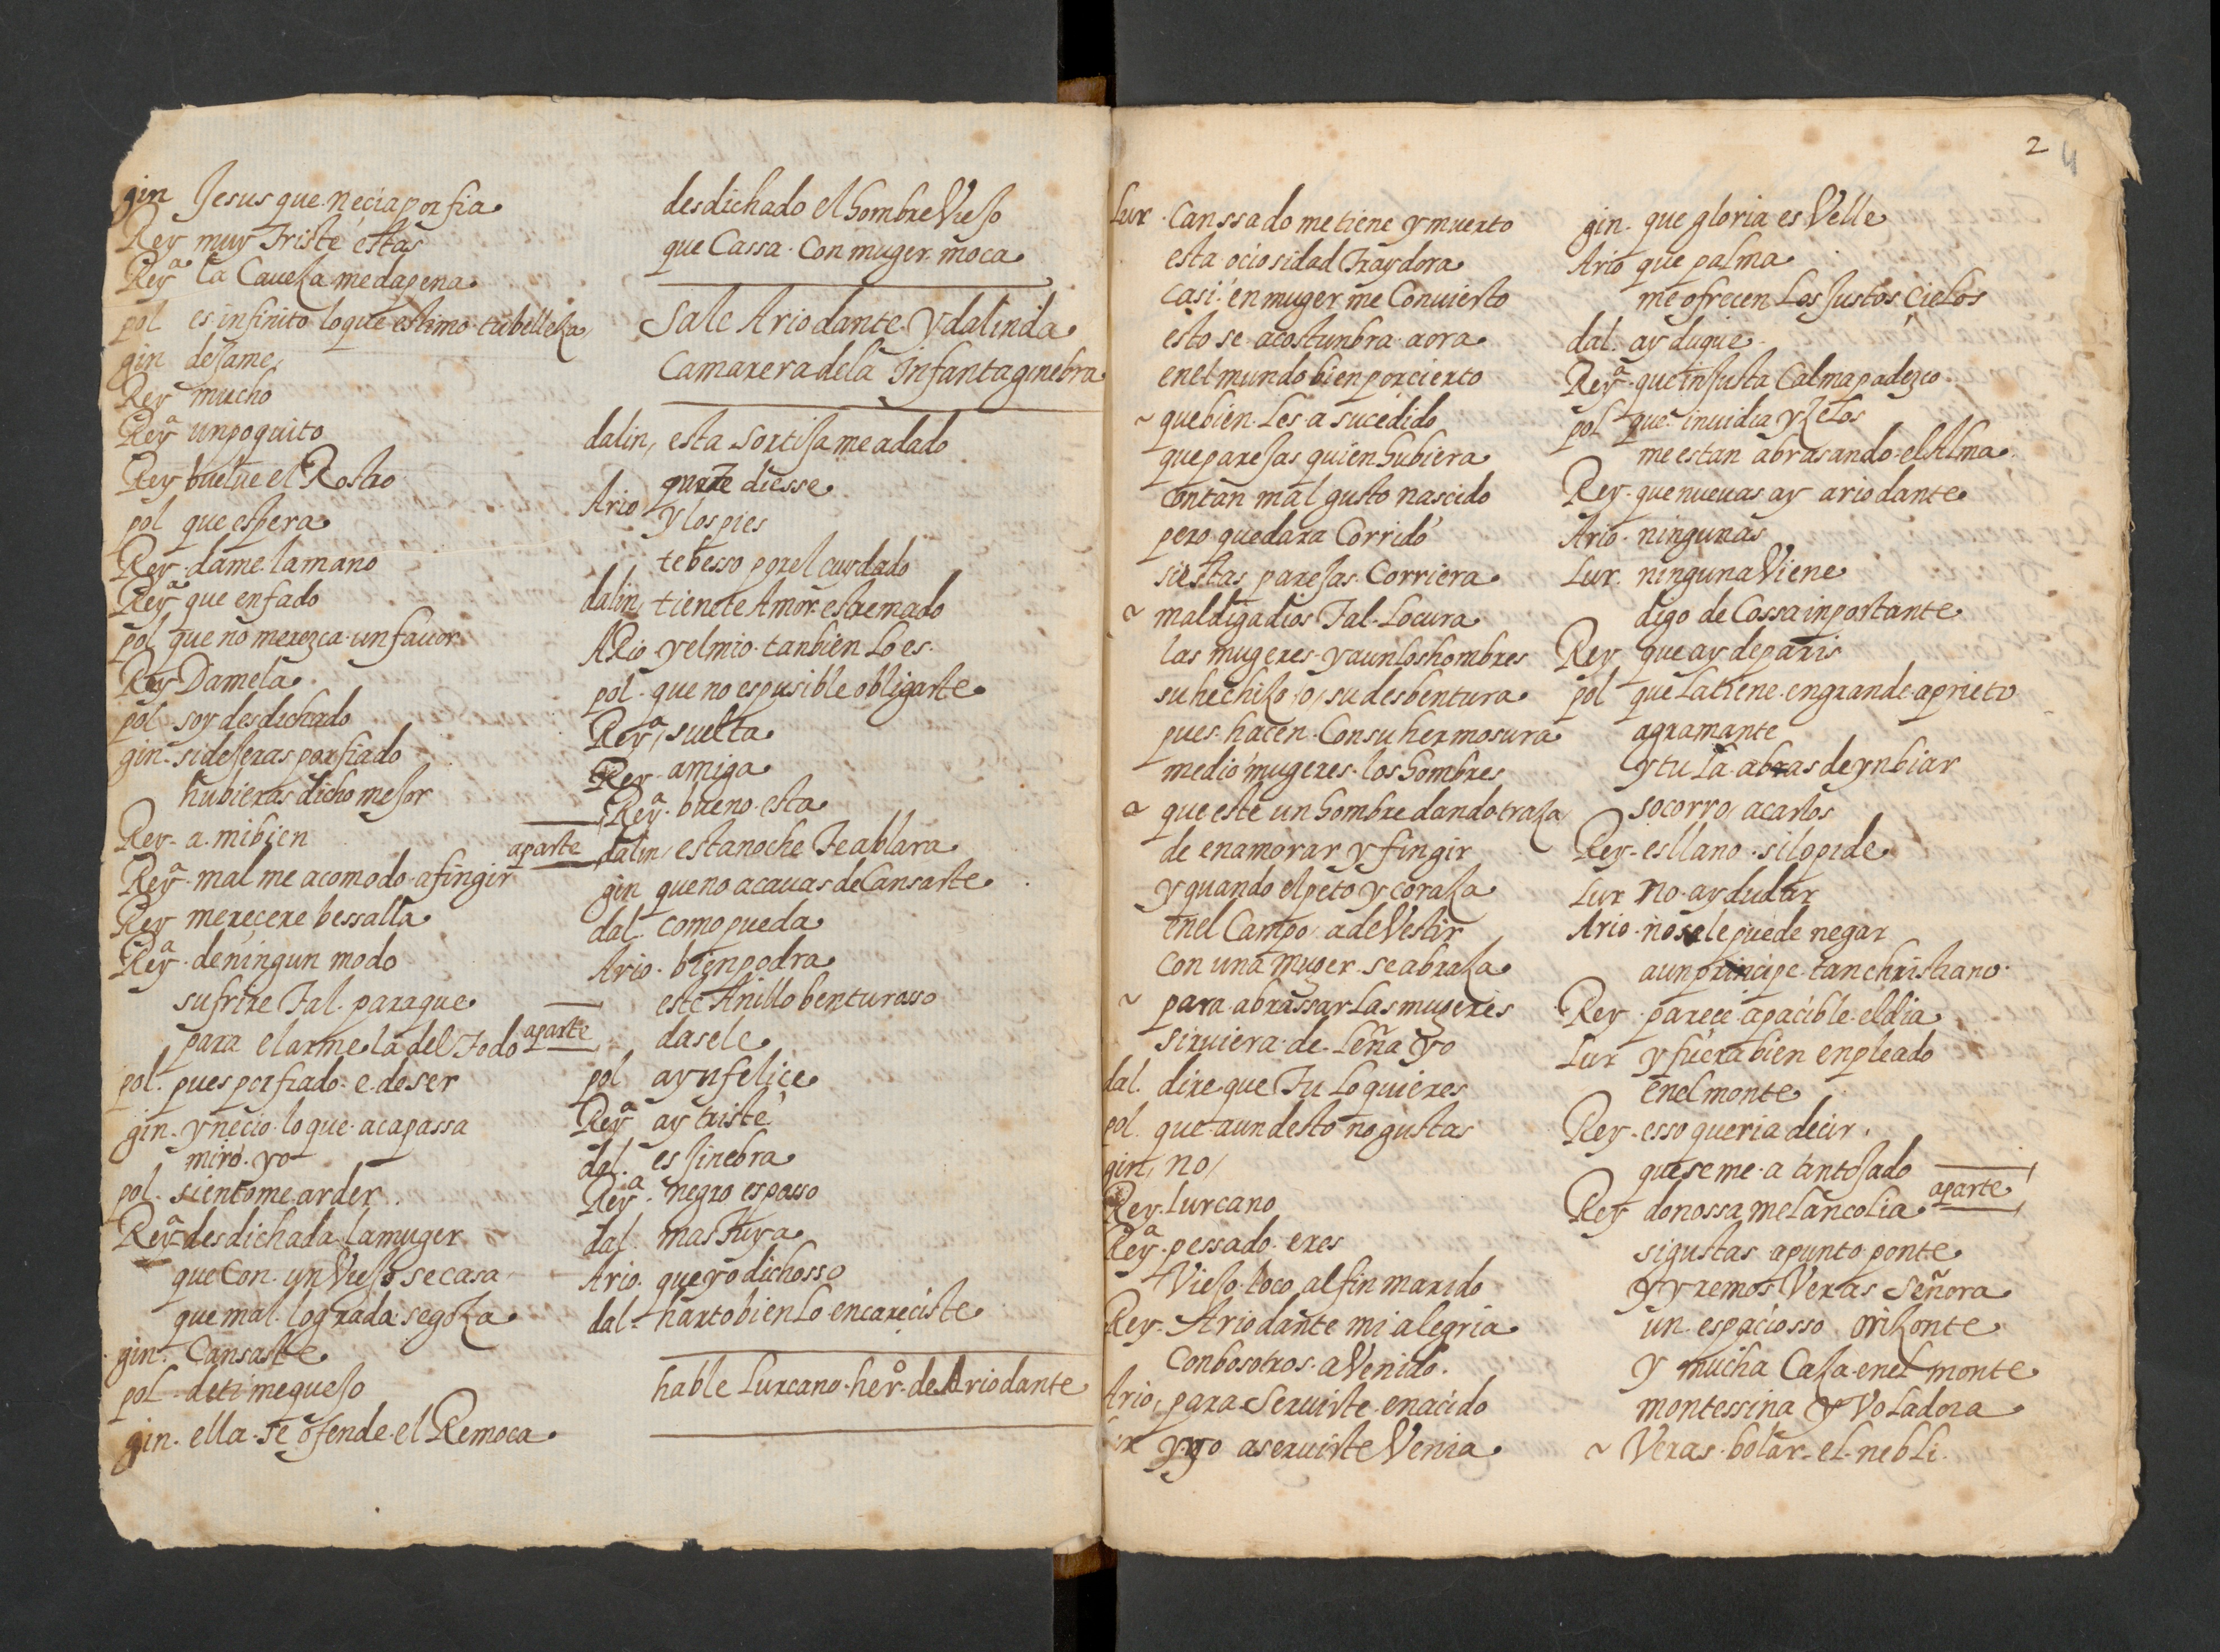 gin Jesus que necia porfia
Rey muy Triste estas
Reyª la Caueza me da pena
pol es infinito lo que estimo tu belleza
gin dejame
Rey mucho
Reyª un poquito
Rey buelue el Rostro
pol que espera
Rey dame la mano
Reyª que enfado
pol que no merezca un fauor
Rey Damela
pol soy desdichado
gin si dejeras porfiado
hubieras dicho mejor
Rey a mi bien
Reyª mal me acomodo a fingir aparte
Rey merecere bessalla
Reyª de ningun modo
sufrire Tal para que
para elarmela del Todo aparte
pol pues porfiado e de ser
gin y necio lo que aca passa
miro yo
pol sientome arder
Reyª desdichada la muger
que Con un Viejo se casa
que mal lograda se goza
gin Cansaste
pol de ti me quejo
gin ella se ofende el Remoca
desdichado el hombre Viejo
que Cassa Con muger moca
Sale Ariodante Y dalinda
Camarera de la Infanta ginebra
dalin, esta sortija me a dado
que te diesse
Ario y los pies
te besso por el cuydado
dalin, tienete Amor estremado
Ario y el mio tanbien lo es
pol que no es pusible obligarte
Reyª suelta
Rey amiga
Reyª bueno esta
dalin, esta noche Te ablara
gin que no acauas de Cansarte
dal. como pueda
Ario bien podra
este Anillo benturosso
dasele
pol ay ynfelice
Reyª ay triste
dal. es jinebra
Reyª negro esposso
dal. mas Tuya
Ario. que yo dichosso
dal harto bien lo encareciste
hable Lurcano her.º de Ariodante
2 4
Lur Canssado me tiene y muerto
esta ociosidad Traydora
casi en muger me Conuierto
esto se acostunbra aora
en el mundo bien por cierto
~ que bien les a sucedido
que parejas quien hubiera
con tan mal gusto nascido
pero quedara Corrido
si estas parejas Corriera
~ mal diga dios Tal Locura
las mugeres y aun los hombres
su hechizo o su desbentura
pues hacen Con su hermosura
medio mugeres los hombres
~ que este un hombre dando traza
de enamorar y fingir
y quando el peto y coraza
en el Campo a de Vestir
con una muger se abraza
~ para abrassar las mugeres
siruiera de Leña yo
dal. dire que Tu lo quieres
pol. que aun desto no gustas
gin, no
Rey. Lurcano
Reyª pessado eres
Viejo loco al fin marido
Rey. Ariodante mi alegria
con bosotros a Venido
Ario, para Seruirte e nacido
ur y yo a seruirte Venia
gin. que gloria es Velle
Ario que palma
me ofrecen Los Justos Cielos
dal. ay duque
Reyª que injusta Calma padezco
pol que inuidia y Zelos
me estan abrasando el Alma
Rey. que nueuas ay ariodante
Ario. ningunas
Lur. ninguna Viene
digo de Cossa inportante
Rey que ay de paris
pol que La tiene en grande aprieto
agramante
y tu la abras de ynbiar
socorro, a carlos
Rey es llano si lo pide
Lur no ay dudar
Ario no se le puede negar
a un principe tan christiano
Rey parece apacible el dia
Lur y fuera bien enpleado
en el monte
Rey. esso queria decir
que se me a antojado
Rey donossa melancolia aparte
si gustas a punto ponte
y yremos Veras Señora
un espaciosso orizonte
y mucha Caza en el monte
montessina y Voladora
~ Veras bolar el nebli